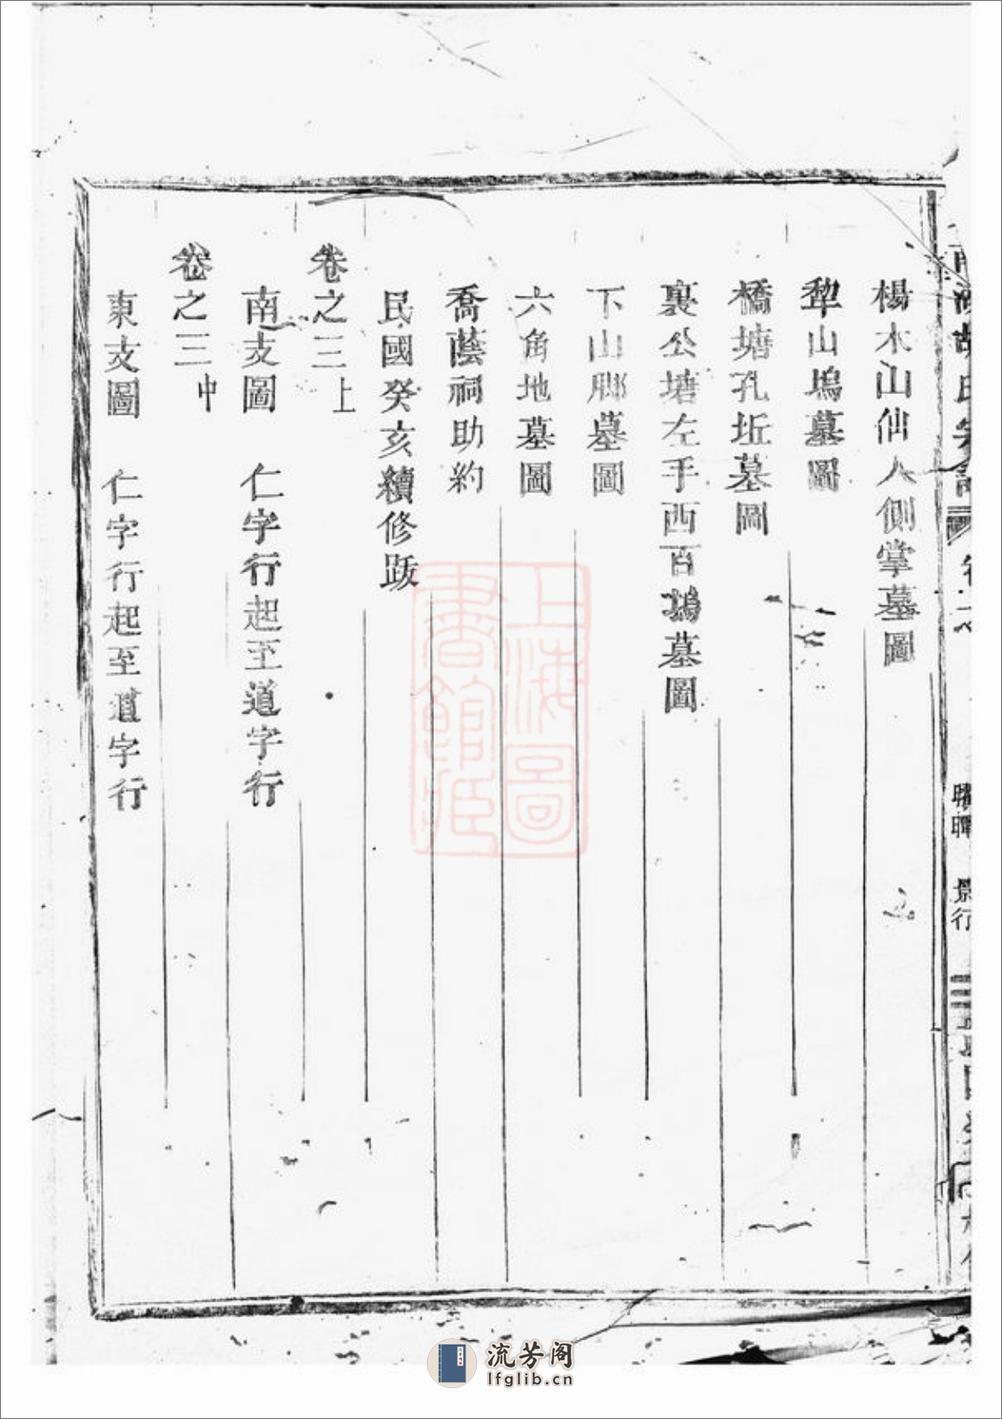 楊木山仙人側掌墓圖
犂山塢墓圖
橋塘孔坵墓圖
裏公塘左手西百塢墓圖
下山脚墓圖
六角地墓圖
喬蔭祠助約
民國癸亥續修跋
卷之三上
南支圖 仁字行起至道字行
卷之三中
東支圖 仁字行起至道字行
胡氏宗譜
景行
上海圖書館藏
流芳阁
lfglib.cn